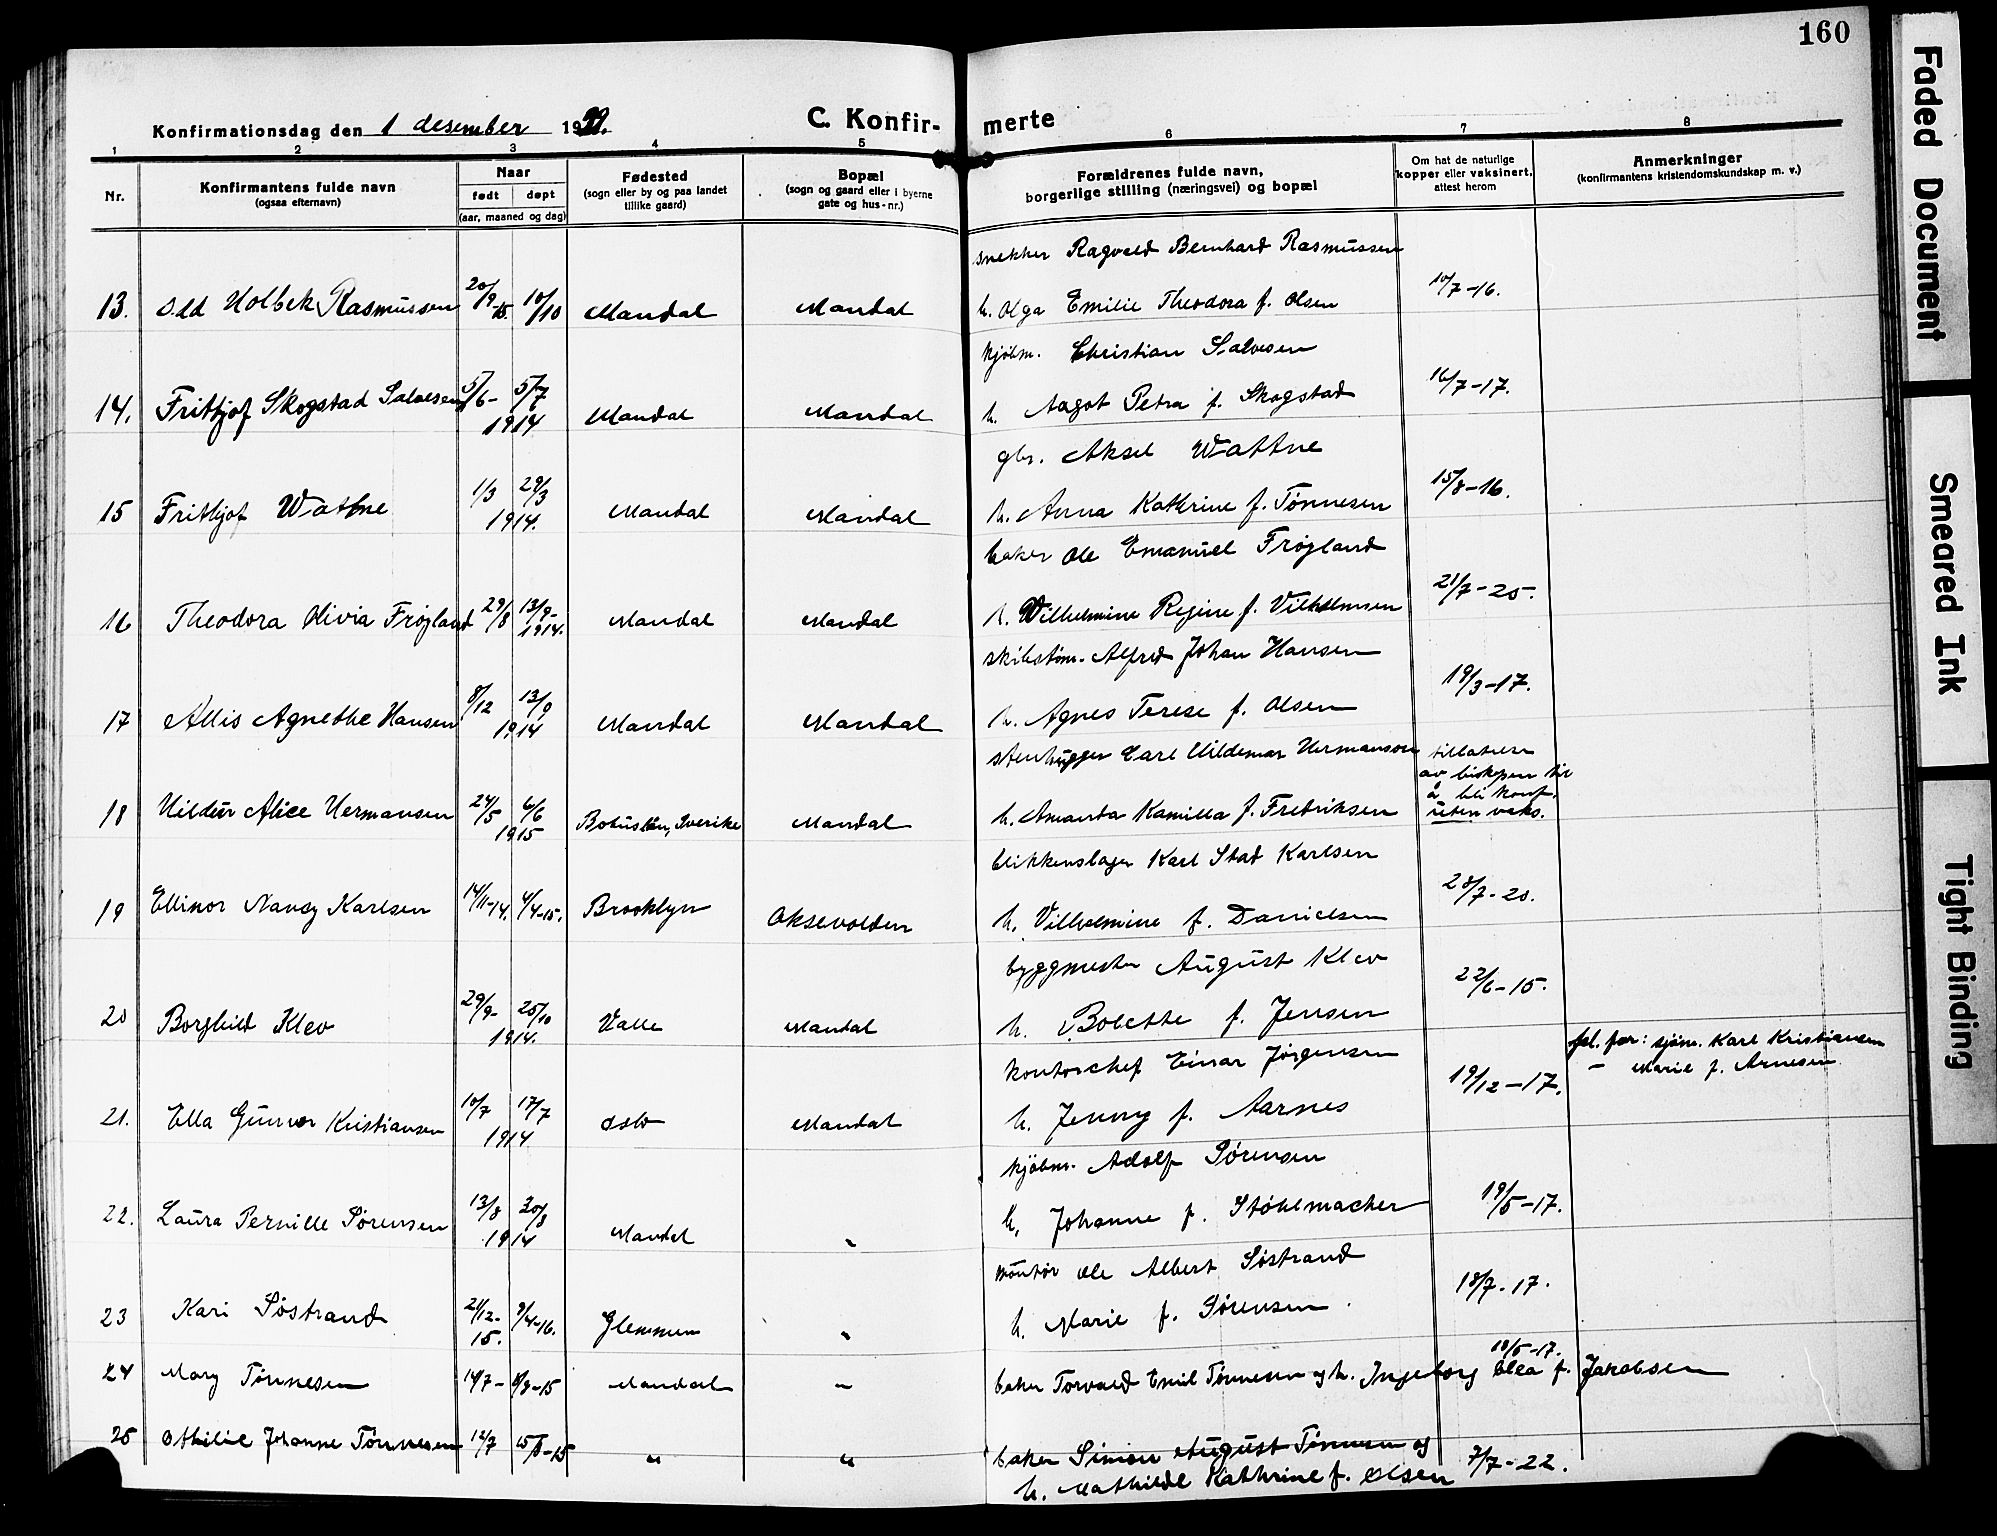 160
Konfirmationsdag den 1 desember 19
C. Konfir- merte
1 2 3 4 5 6 7 8
Nr.
Konfirmantens fulde navn
(ogsaa efternavn)
Naar
født døpt
(aar, maaned og dag)
Fødested
(sogn eller by og paa landet
tillike gaard)
Bopæl
(sogn og gaard eller i byerne
gate og hus-nr.)
Forældrenes fulde navn,
borgerlige stilling (næringsvei) og bopæl
Om hat de naturlige
kopper eller vaksinert,
attest herom
Anmerkninger
(konfirmantens kristendomskundskap m. v.)
snekker Ragvald Bernhard Rasmussen
13. Odd Holbek Rasmussen 20/9-15. 10/10 Mandal Mandal h. Olga Emilie Theodora f. Olsen 10/7-16.
kjøbm. Christian Salvesen
14. Frithjof Skogstad Salvesen 5/6- 5/7 1914 Mandal Mandal h. Aagot Petra f. Skogstad 16/7-17.
gbr. Aksel Wattne
15 Frithjof Wattne 1/3 29/3 1914. Mandal Mandal h. Anna Kathrine f. Tønnesen 15/8-16.
baker Ole Emanuel Frøjland
16 Theodora Olivia Frøjland 29/8 13/9- 1914. Mandal Mandal h. Wilhelmine Regine f. Vilhelmsen 21/7-25.
skibstøm. Alfred Johan Hansen
17 Allis Agnethe Hansen 8/12 13/9 1914 Mandal Mandal h. Agnes Terese f. Olsen 19/3-17.
stenhugger Carl Hildemar Hermanson tillatelse
av biskopen til
å bli konf.
18 Hildur Alice Hermansen 24/5 6/6 1915 Bohuslän, Sverike Mandal h. Amanda Kamilla f. Fredriksen uten vaks.
blikkenslager Karl Stad Karlsen
19 Ellinor Nancy Karlsen 14/11-14. 4/4-15. Brooklyn Oksevolden h. Vilhelmine f. Danielsen 28/7-20.
byggmester August Klev
20 Borghild Klev 29/9- 25/10 1914. Valle Mandal h. Bolette f. Jensen 22/6-15.
kontorchef Einar Jørgensen fpl. far: sjøm. Karl Kristiansen
– Marie f. Arnesen
21. Ella Gunvor Kristiansen 10/7 17/7 1914 Oslo Mandal h. Jenny f. Aarnes 19/12-17.
kjøbm. Adolf Sørensen
22. Laura Pernille Sørensen 13/8 30/8 1914 Mandal " h. Johanne f. Støhlmacher 19/5-17.
montør Ole Albert Sjøstrand
23 Kari Sjøstrand 21/12-15. 9/4-16. Glemmen " h. Marie f. Sørensen. 18/7-17.
18/5-17.
24 Mary Tønnesen 14/7- 8/8-15 Mandal " baker Torvald Emil Tønnesen og h. Ingeborg Elea f. Jakobsen
25 Othilie Johanne Tønnesen 12/7 15/8-15 " " baker Simon August Tønnesen og 7/7-22.
h. Mathilde Kathrine f. Olsen
Faded Document
Smeared Ink
Tight Binding